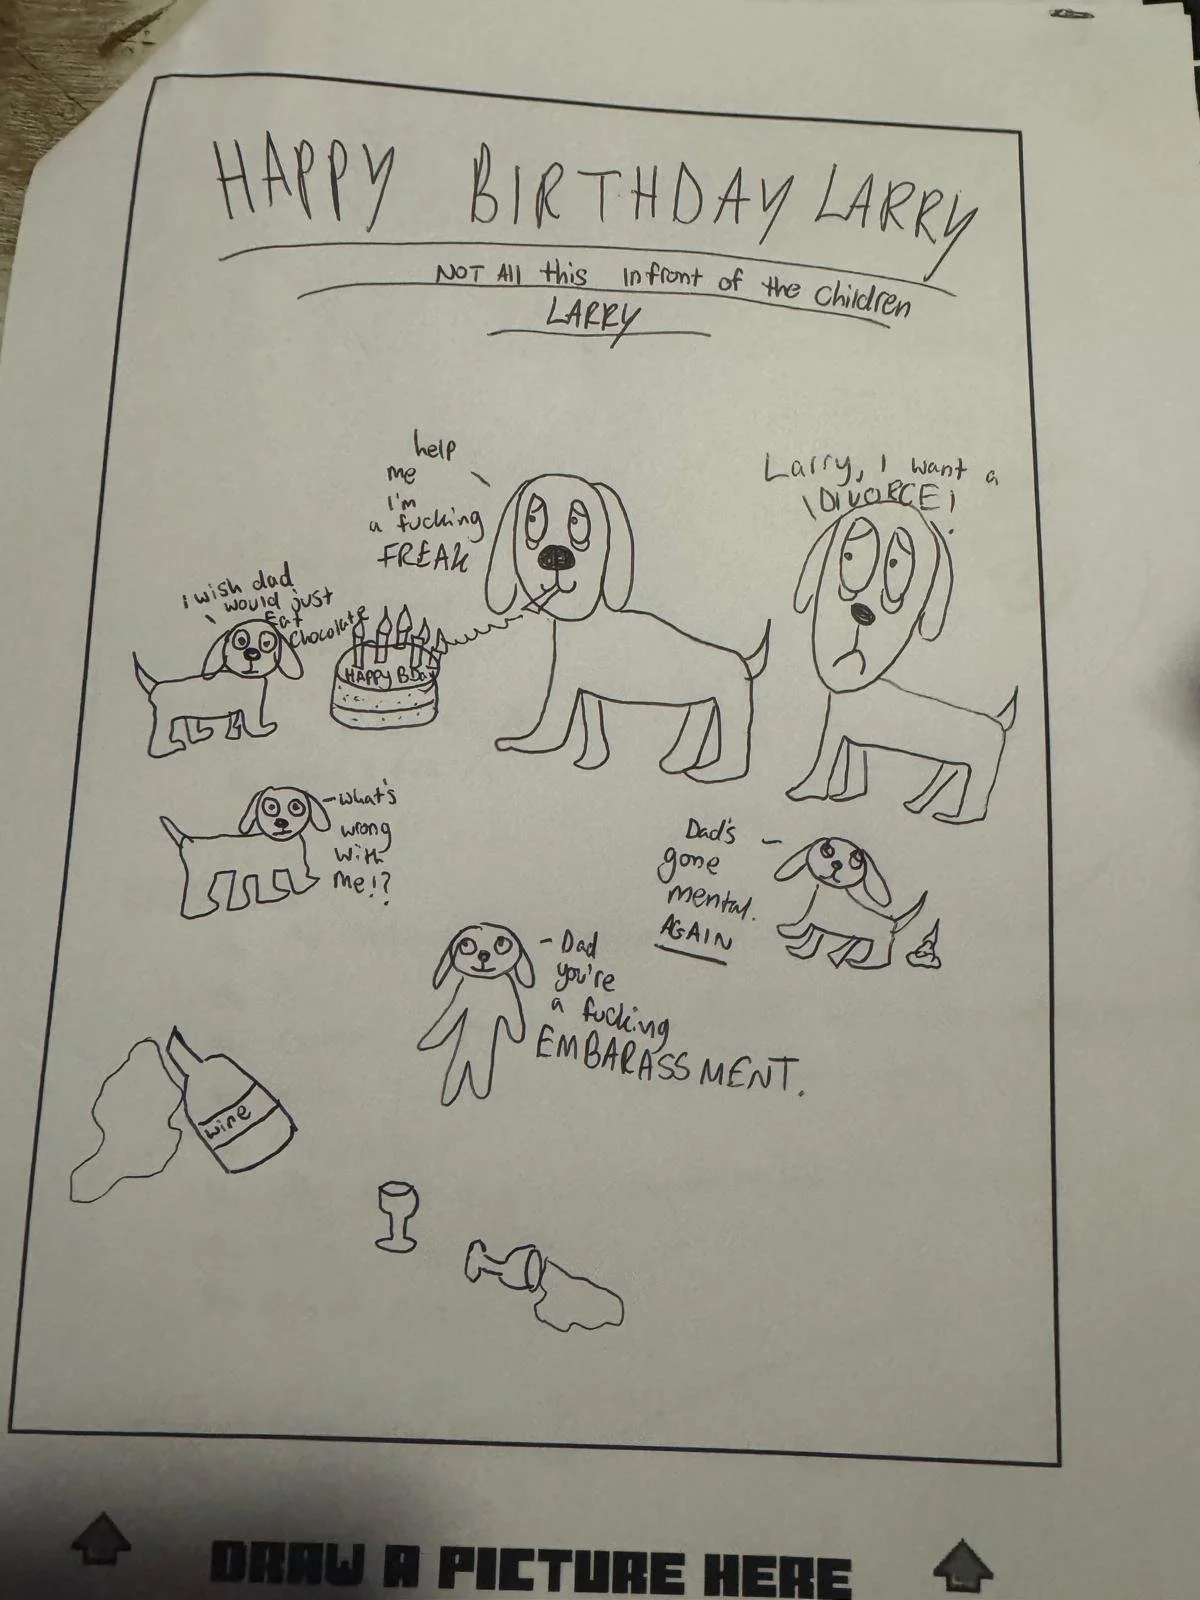 HAPPY BIRTHDAY LARRY
NOT All this infront of the children
LARRY
help
me
I'm
a fucking
FREAK
Larry, I want a
DIVORCE!
I wish dad
would just
Eat
chocolate
HAPPY BDay
what's
wrong
with
me!?
Dad's
gone
mental.
AGAIN
Dad
you're
a fucking
EMBARASSMENT.
wine
DRAW A PICTURE HERE